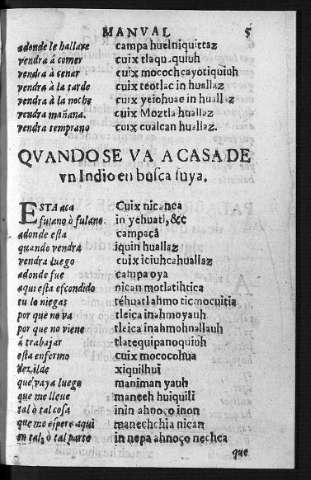 MANVAL 5
adonde le hallare campa huelniquittaz
vendra á comer cuix tlaquaquiuh
vendra à cenar cuix mocochcayotiquiuh
vendra à la tarde cuix teotlac in huallaz
vendra à la noche cuix yeiohuac in huallaz
vendra mañana. cuix Moztla huallaz
vendra temprano cuix cualcan huallaz.
QVANDO SE VA A CASA DE
vn Indio en busca suya.
ESTA aca Cuix nicanca
fulano ò fulano in yehuatl, &c
adonde esta campacà
quando vendrà iquin huallaz
vendra luego cuix iciuhcahuallaz
adonde fue campa oya
aqui esta escondido nican motlatihtica
tu lo niegas tèhuatl ahmo ticmocuitia
por que no va tleica inahmoyauh
por que no viene tleica inahmohuallauh
à trabajar tlatequipanoquiuh
esta enfermo cuix mococohua
dezilde xiquilhui
que vaya luego maniman yauh
que me lleve manech huiquili
tal ò tal cosa inin ahnoço inon
que me espere aqui manechchia nican
en tal, ò tal parte in nepa ahnoço nechca
que